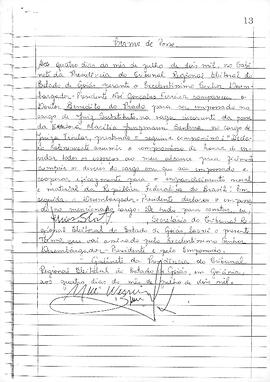 13
Termo de Posse
Aos quatro dias do mês de julho de dois mil, no Gabi-
nete da Presidência do Tribunal Regional Eleitoral do
Estado de Goiás, perante o Excelentíssimo Senhor Desem-
bargador-Presidente Gonçalves compareceu o
Doutor Benedito do Prado para ser empossado no
cargo de Juiz Substituto, na vaga da posse
da Doutora Marília Jungmann Santana, no cargo de
Juíza Titular, prestando o seguinte compromisso: "Decla-
ro solenemente assumir o compromisso de honra de en-
vidar todos os esforços ao meu alcance para fielmente
cumprir os deveres do cargo em que sou empossado e
cooperar eficazmente para o engrandecimento moral
e material da República Federativa do Brasil". Em
seguida o Desembargador-Presidente declarou o empos-
sado no mencionado cargo. De tudo para constar, eu
Secretário do Tribunal Re-
gional Eleitoral do Estado de Goiás, lavrei o presente
Termo, que vai assinado pelo Excelentíssimo Senhor
Desembargador-Presidente e pelo Empossado.
Gabinete da Presidência do Tribunal
Regional Eleitoral do Estado de Goiás, em Goiânia,
aos quatro dias do mês de julho de dois mil.